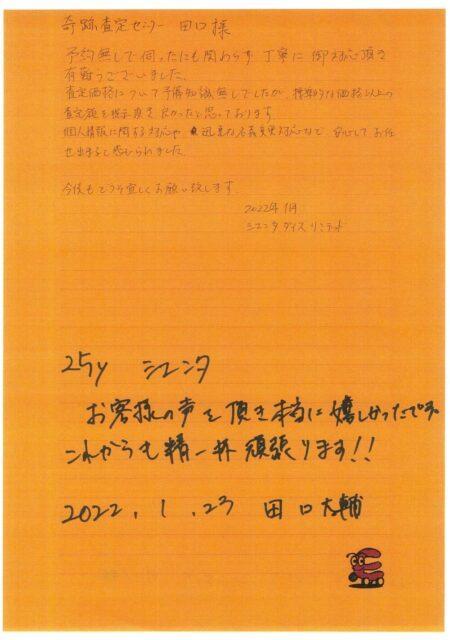 奇跡査定センター 田口様
予約無しで伺ったにも関わらず 丁寧に御対応頂き
有難うございました。
査定価格について予備知識無しでしたが、標準的な価格以上の
査定額を提示頂き良かったと思っております
個人情報に関する対応や 迅速な名義変更対応など、安心してお任
せ出来ると感じられました。
今後もどうぞ宜しくお願い致します
2022年1月
シエンタ ダイス リミテッド
25y シエンタ
お客様の声を頂き本当に嬉しかったです
これからも精一杯頑張ります!!
2022.1.23 田口大輔